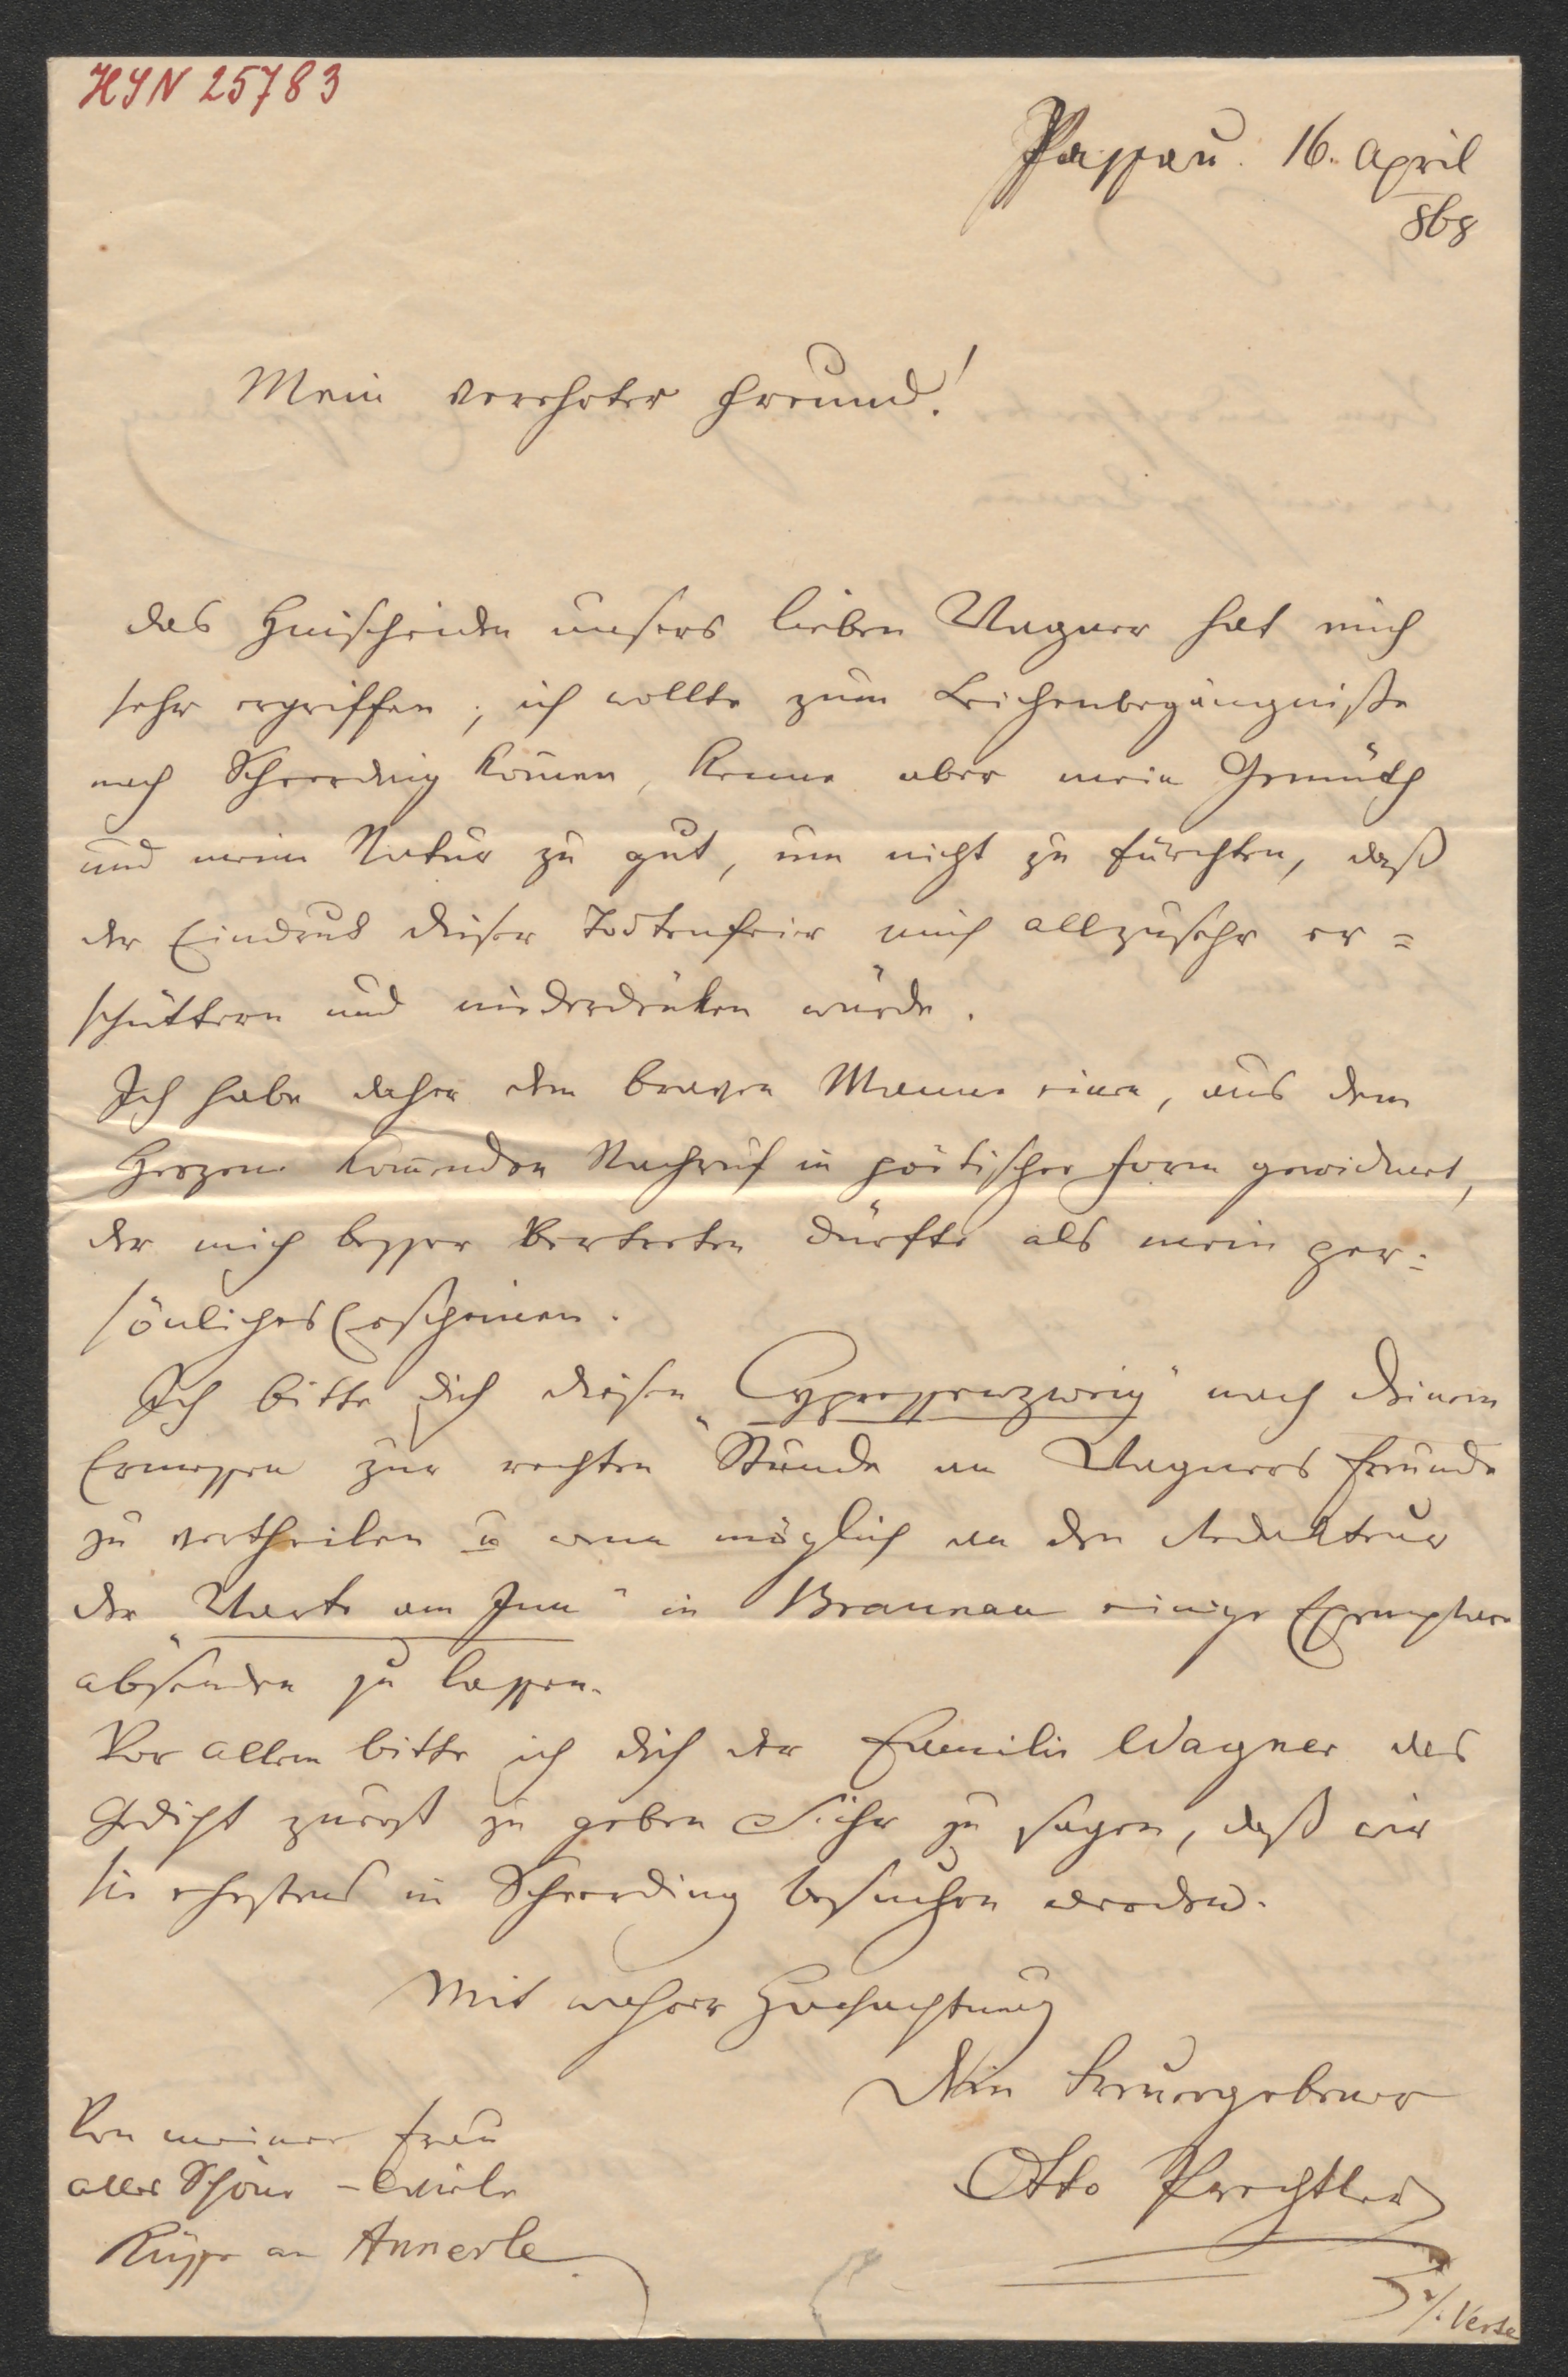 HIN 25783
Passau. 16. April
868
Mein verehrter Freund!
das Hinscheiden unsers lieben Wagner hat mich
sehr ergriffen; ich wollte zum Leichenbegängniße
nach Scheerding kom̄en, kenne aber mein Gemüth
und meine Natur zu gut, um nicht zu fürchten, daß
der Eindruck dieser Todtenfeier mich allzusehr er=
schüttern und niederdrücken würde.
Ich habe daher dem braven Manne einen, aus dem
Herzen kom̄enden Nachruf in poëtischer Form gewidmet,
der mich besser vertreten dürfte als mein per=
sönliches Erscheinen.
Ich bitte Dich diesen „Cypressenzweig" nach Deinem
Ermessen zur rechten Stunde an Wagners Freunde
zu vertheilen u wenn möglich an den Redakteur
der „Warte am Inn" in Braunau einige Exemplare
absenden zu lassen.
Vor allem bitte ich Dich der Familie Wagner das
Gedicht zuerst zu geben & ihr zu sagen, daß wir
sie ehestens in Scheerding besuchen werden.
Mit wahrer Hochachtung
Dein treuergebener
Otto Prechtler
Von meiner Frau
alles Schöne – viele
Küsse an Annerle
/. Verte